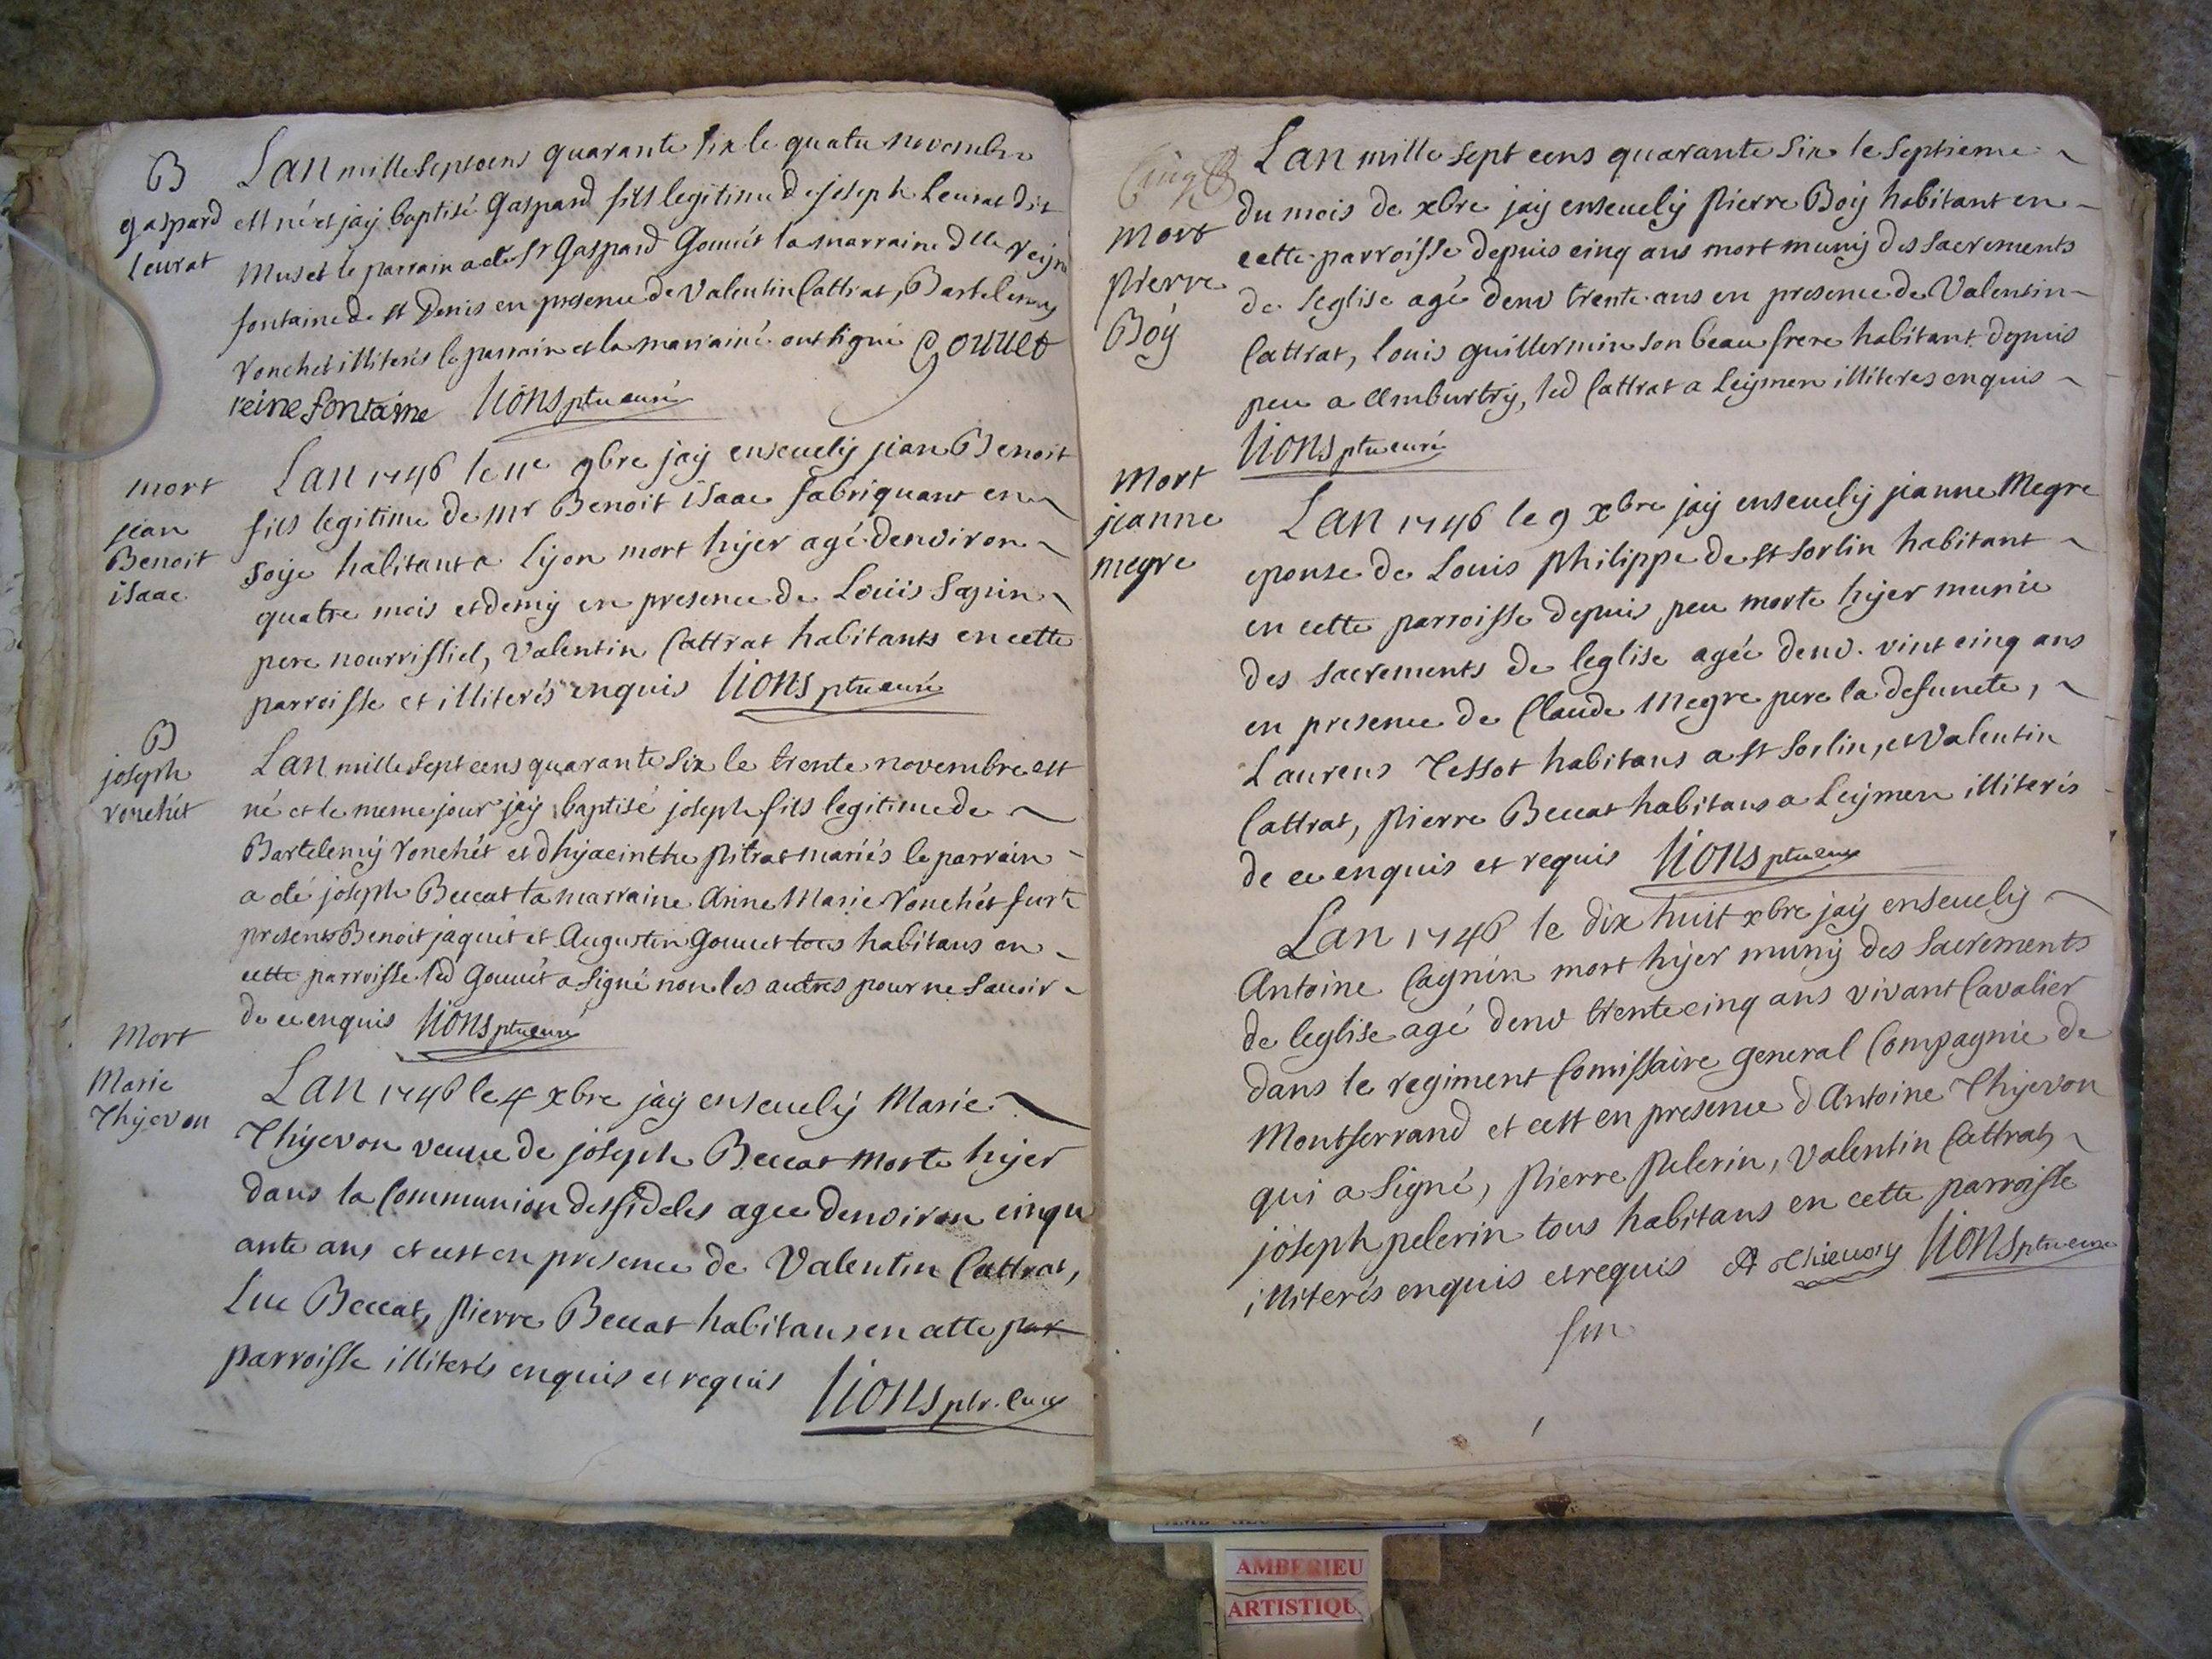 B
gaspard
leurat
Lan mille septcens quarante six le quatre novembre
est né et jaÿ baptisé Gaspard fils legitime de joseph Leurat dit
Muset le parrain a eté Sr Gaspard Gouuét la marraine dlle reÿne
fontaine de st Denis en presence de Valentin Cattrat, Bartelemy
Vonchet illiterés le parrain et la marraine ont signé Gouuet
reine fontaine Lions ptre curé
mort
jean
Benoit
isaac
Lan 1746 le 11e 9bre jaÿ enseuelÿ jean Benoit
fils legitime de mr Benoit isaac fabriquant en
soÿe habitant a Lÿon mort hÿer agé denviron
quatre mois et demÿ en presence de Louis Sapin
pere nourrissiel, Valentin Cattrat habitants en cette
parroisse et illiterés enquis Lions ptre curé
B
joseph
vonchét
Lan mille sept cens quarante six le trente novembre est
né et le meme jour jaÿ baptisé joseph fils legitime de
Bartelemÿ Vonchét et dhÿacinthe Pitrat mariés le parrain
a eté joseph Beccat la marraine Anne Marie Vonchét furt
presents Benoit jaquét et Augustin Gouuet tous habitans en
cette parroisse led Gouuét a signé non les autres pour ne sauoir
de ce enquis Lions ptre curé
Mort
Marie
Thÿevon
Lan 1746 le 4 xbre jaÿ enseuelÿ Marie
Thÿevon veuue de joseph Beccat morte hÿer
dans la Communion des fideles agee denviron cinqu
ante ans et cest en presence de Valentin Cattrat,
Luc Beccat, Pierre Beccat habitans en cette par
parroisse illiterés enquis et requis Lions ptr. Curé
Cinq
mort
Pierre
Boÿ
Lan mille sept cens quarante six le septieme
du mois de xbre jaÿ enseuelÿ Pierre Boÿ habitant en
cette parroisse depuis cinq ans mort munÿ des sacrements
de leglise agé denv trente ans en presence de Valentin
Cattrat, Louis guillermin son beau frere habitant depuis
peu a Amburtrÿ, led Cattrat a Leÿmen illiteres enquis
Lions ptre curé
Mort
jeanne
megre
Lan 1746 le 9 xbre jaÿ enseuelÿ jeanne Megre
epouse de Louis Philippe de st sorlin habitant
en cette parroisse depuis peu morte hÿer munie
des sacrements de leglise agée denv. vint cinq ans
en presence de Claude Megre pere la defuncte,
Laurens Tessot habitans a st sorlin, et Valentin
Cattrat, Pierre Beccat habitans a Leÿmen illiterés
de ce enquis et requis Lions ptre curé
Lan 1746 le dix huit xbre jaÿ enseuelÿ
Antoine Cagnin mort hÿer munÿ des sacrements
de leglise agé denv trente cinq ans vivant Cavalier
dans le regiment Comissaire general Compagnie de
Montferrand et cest en presence d Antoine Thÿevon
qui a signé, Pierre Pelerin, Valentin Cattrat,
joseph pelerin tous habitans en cette parroisse
illiterés enquis et requis A Thieuon Lions ptre curé
fin
AMBERIEU
ARTISTIQU